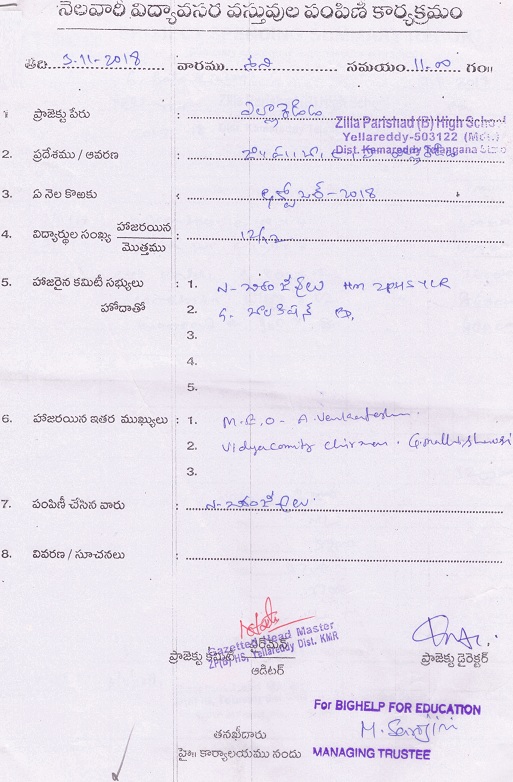 నెలవారీ విద్యావసర వస్తువుల పంపిణీ కార్యక్రమం
తేది 3-11-2018 వారము శని సమయం 11-00 గం॥
1. ప్రాజెక్టు పేరు : ఎల్లారెడ్డి
Zilla Parishad (B) High School
Yellareddy-503122
2. ప్రదేశము / ఆవరణ :
Dist. Kamareddy Telangana State
3. ఏ నెల కొఱకు : అక్టోబర్-2018
4. విద్యార్థుల సంఖ్య హాజరయిన / మొత్తము : 12/12
5. హాజరైన కమిటీ సభ్యులు : 1. HM ZPHS YLR
హోదాతో 2. బాలకిషన్
3.
4.
5.
6. హాజరయిన ఇతర ముఖ్యులు : 1. M.E.O- A. Venkatesham
2. Vidyacomity Chirman.
3.
7. పంపిణీ చేసిన వారు :
8. వివరణ / సూచనలు :
Gazetted Head Master
ZP(B)HS, Yellareddy Dist. KNR
ప్రాజెక్టు కమిటీ చైర్మెన్ ప్రాజెక్టు డైరెక్టర్
ఆడిటర్
For BIGHELP FOR EDUCATION
M. Sarojini
తనఖీదారు
హై॥ కార్యాలయము నందు MANAGING TRUSTEE